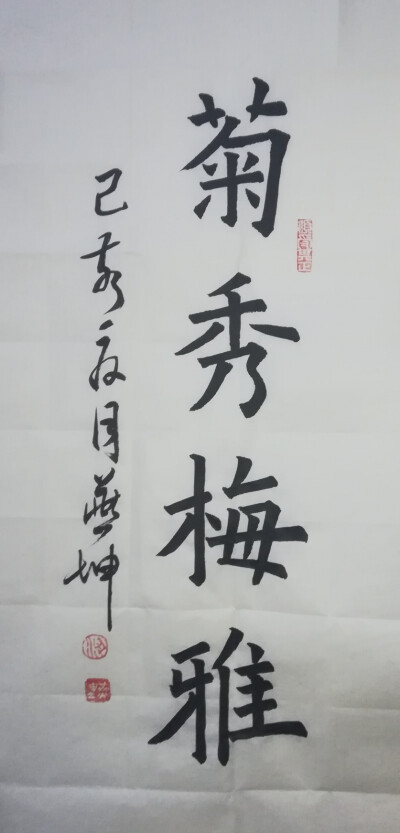 菊秀梅雅
己亥夏月燕坤